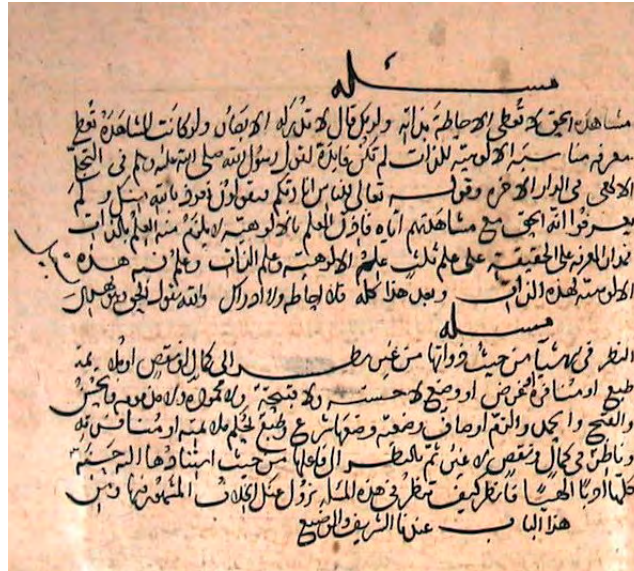 مسئلة
مشاهدة الحق لا تعطى الاحاطة بذاته ولذلك قال لا تدركه الابصار ولو كانت المشاهدة تعطى
معرفة مناسبة الالوهية للذات لم تكن فايدة لقول رسول الله صلى الله عليه وسلم فى التجلى
الالهى فى الدار الاخرة وقوله تعالى للناس انا ربكم ويقولون نعوذ بالله منك ولم
يعرفوا انه الحق مع مشاهدتهم اياه فاذن العلم بالالوهية لا يلزم منه العلم بالذات
المعرفة على الحقيقة على علم ثلث علم الالوهية وعلم الذات وعلم نسبة هذه
الالوهية لهذه الذات وبعد هذا كله فلا احاطة ولا ادراك والله يقول الحق وهو يهدى السبيل
مسئلة
النظر فى الاشيآ من حيث ذواتها من غير نظر الى كمال او نقص او ملايمة
طبع او منافرة او غرض او وضع لا حسنة ولا قبيحة ولا محمودة ولا مذمومة فالحسن
والقبح والحمد والذم اوصاف وضعية وضعها شرع او طبع لحكم ملايمته او منافرته
وناظر فى كمال ونقص لا غير ثم بالنظر الى فاعلها من حيث استنادها اليه حسنة
كلها ادبا الهيا فانظر كيف تنظر فى هذه المسئلة يزول عنك الخلاف المشهور فيها ومن
هذا الباب عندنا الشريف والوضيع